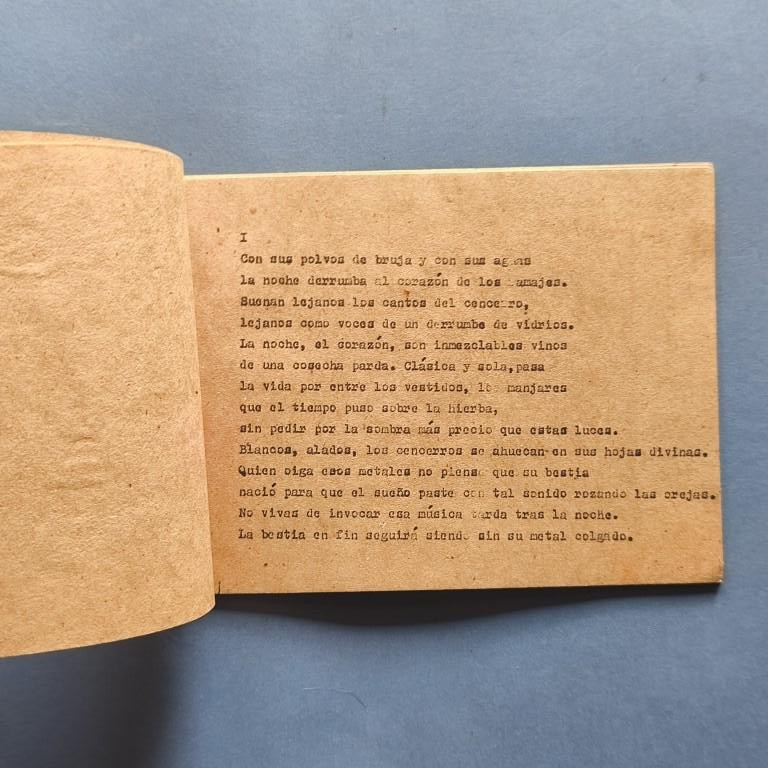 I
Con sus polvos de bruja y con sus aguas
la noche derrumba al corazón de los ramajes.
Suenan lejanos los cantos del cencerro,
lejanos como voces de un derrumbe de vidrios.
La noche, el corazón, son inmezclables vinos
de una cosecha parda. Clásica y sola,pasa
la vida por entre los vestidos, los manjares
que el tiempo puso sobre la hierba,
sin pedir por la sombra más precio que estas luces.
Blancos, alados, los cencerros se ahuecan en sus hojas divinas.
Quien oiga esos metales no piense que su bestia
nació para que el sueño paste con tal sonido rozando las orejas.
No vivas de invocar esa música tarda tras la noche.
La bestia en fin seguirá siendo sin su metal colgado.